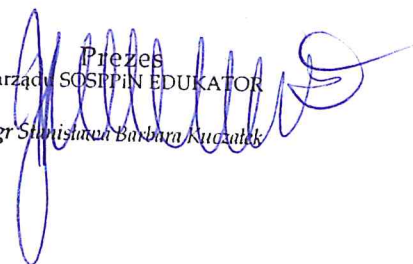 Prezes
arządu SOSPPiN EDUKATOR
gr Stanisława Barbara Kuczałek